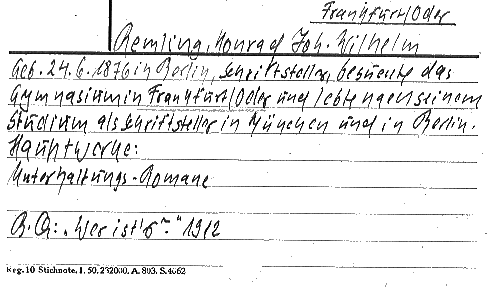 Frankfurt/Oder
Remling, Konrad Joh. Wilhelm
Geb. 24.6.1876 in Berlin, Schriftsteller, besuchte das
Gymnasium in Frankfurt/Oder und lebte seinem
Studium als Schriftsteller in München und in Berlin.
Hauptwerke:
Unterhaltungs-Romane
B.Q.: „Wer ist's" 1912
Reg. 10 Stichnote. 1. 50. 232000. A. 803. S. 4662